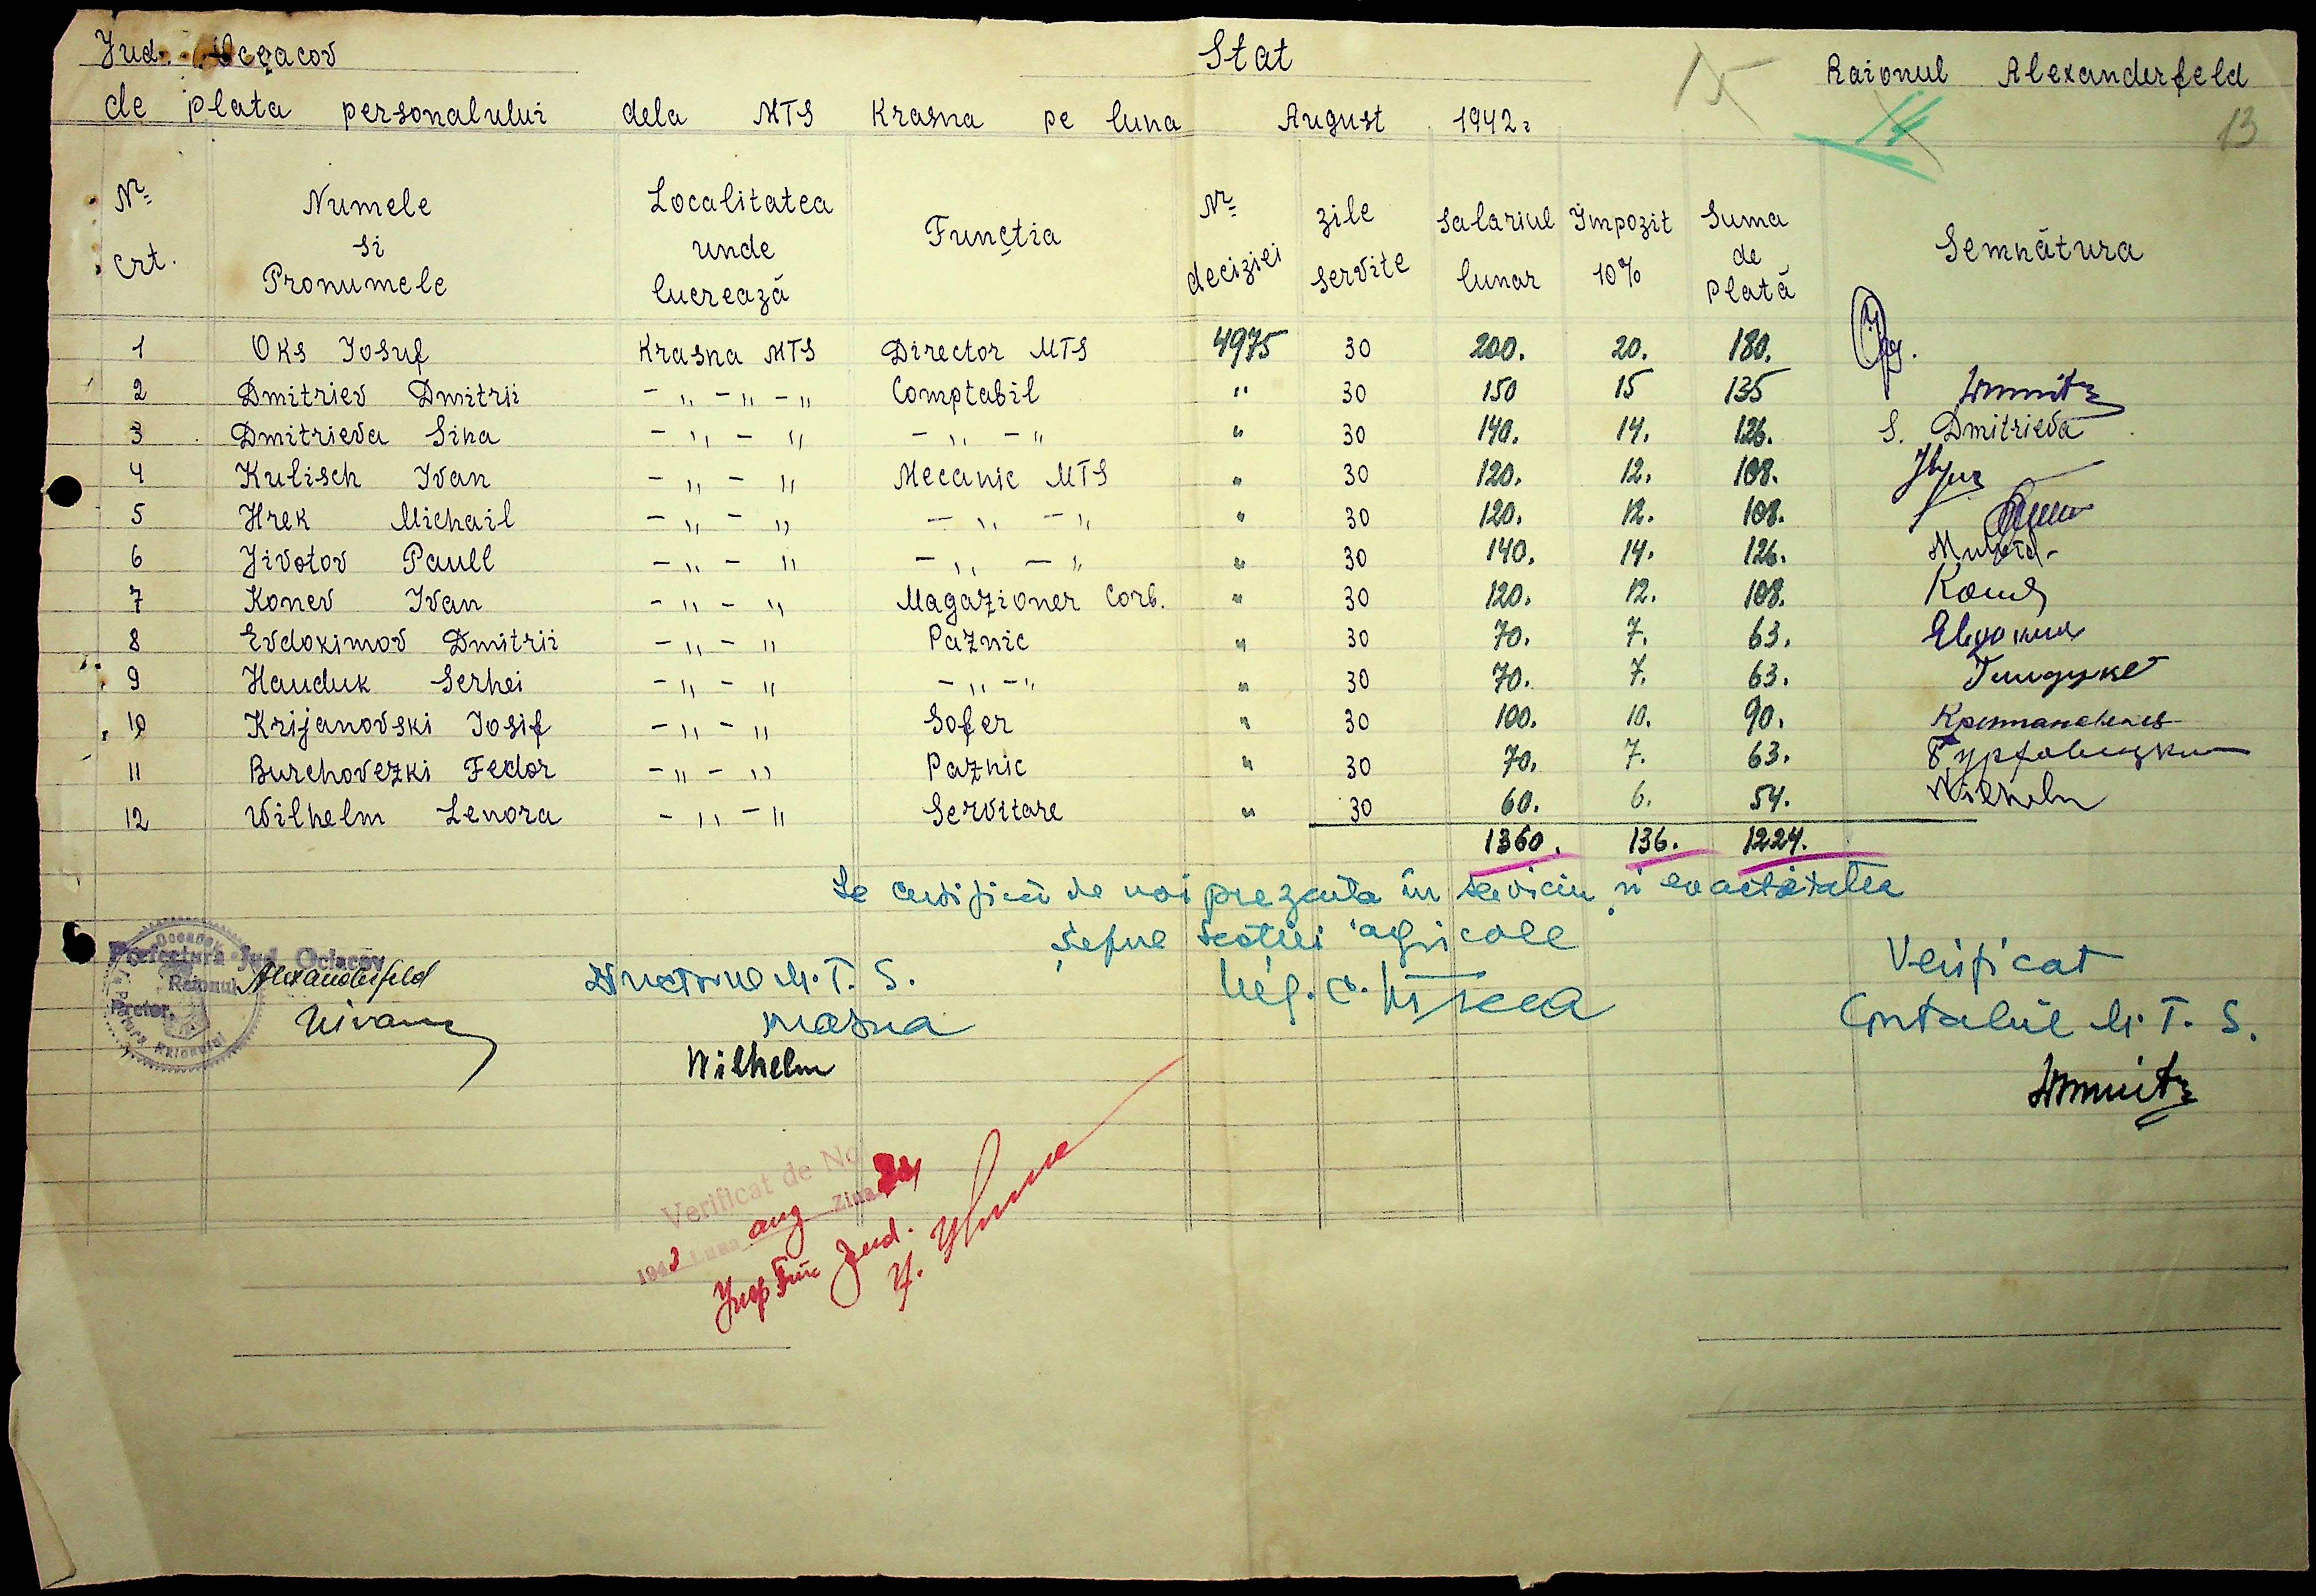 Jud. Oceacov Stat Raionul Alexanderfeld
de plata personalului dela MTS Krasna pe luna August 1942
15 14 13
Nr crt. Numele si Pronumele Localitatea unde lucrează Funcția Nr deciziei zile servite Salariul lunar Impozit 10% Suma de plată Semnătura
1 Oks Iosuf Krasna MTS Director MTS 4975 30 200. 20. 180.
2 Dmitriev Dmitrii - „ - „ - „ Comptabil „ 30 150 15 135
3 Dmitrieva Sina - „ - „ - „ - „ „ 30 140. 14. 126. S. Dmitrieva
4 Kulisch Ivan - „ - „ Mecanic MTS „ 30 120. 12. 108.
5 Hrek Michail - „ - „ - „ - „ „ 30 120. 12. 108.
6 Jivotov Paull - „ - „ - „ - „ „ 30 140. 14. 126.
7 Konev Ivan - „ - „ Magazioner Corb. „ 30 120. 12. 108.
8 Evdokimov Dmitrii - „ - „ Paznic „ 30 70. 7. 63.
9 Hauduk Serhei - „ - „ - „ - „ „ 30 70. 7. 63.
10 Krijanovski Iosif - „ - „ Sofer „ 30 100. 10. 90.
11 Burchovezki Fedor - „ - „ Paznic „ 30 70. 7. 63.
12 Wilhelm Lenora - „ - „ Servitare „ 30 60. 6. 54. Wilhelm
1360. 136. 1224.
Se certifică de noi prezența în serviciu și exactitatea
șeful secției agricole
Prefectura Jud. Ociacov
Raionul Alexanderfeld
Pretor,
Directorul M.T.S.
Krasna
Wilhelm
Verificat
Contabilul M.T.S.
Verificat de Noi
1942 Luna aug Ziua
Jud.